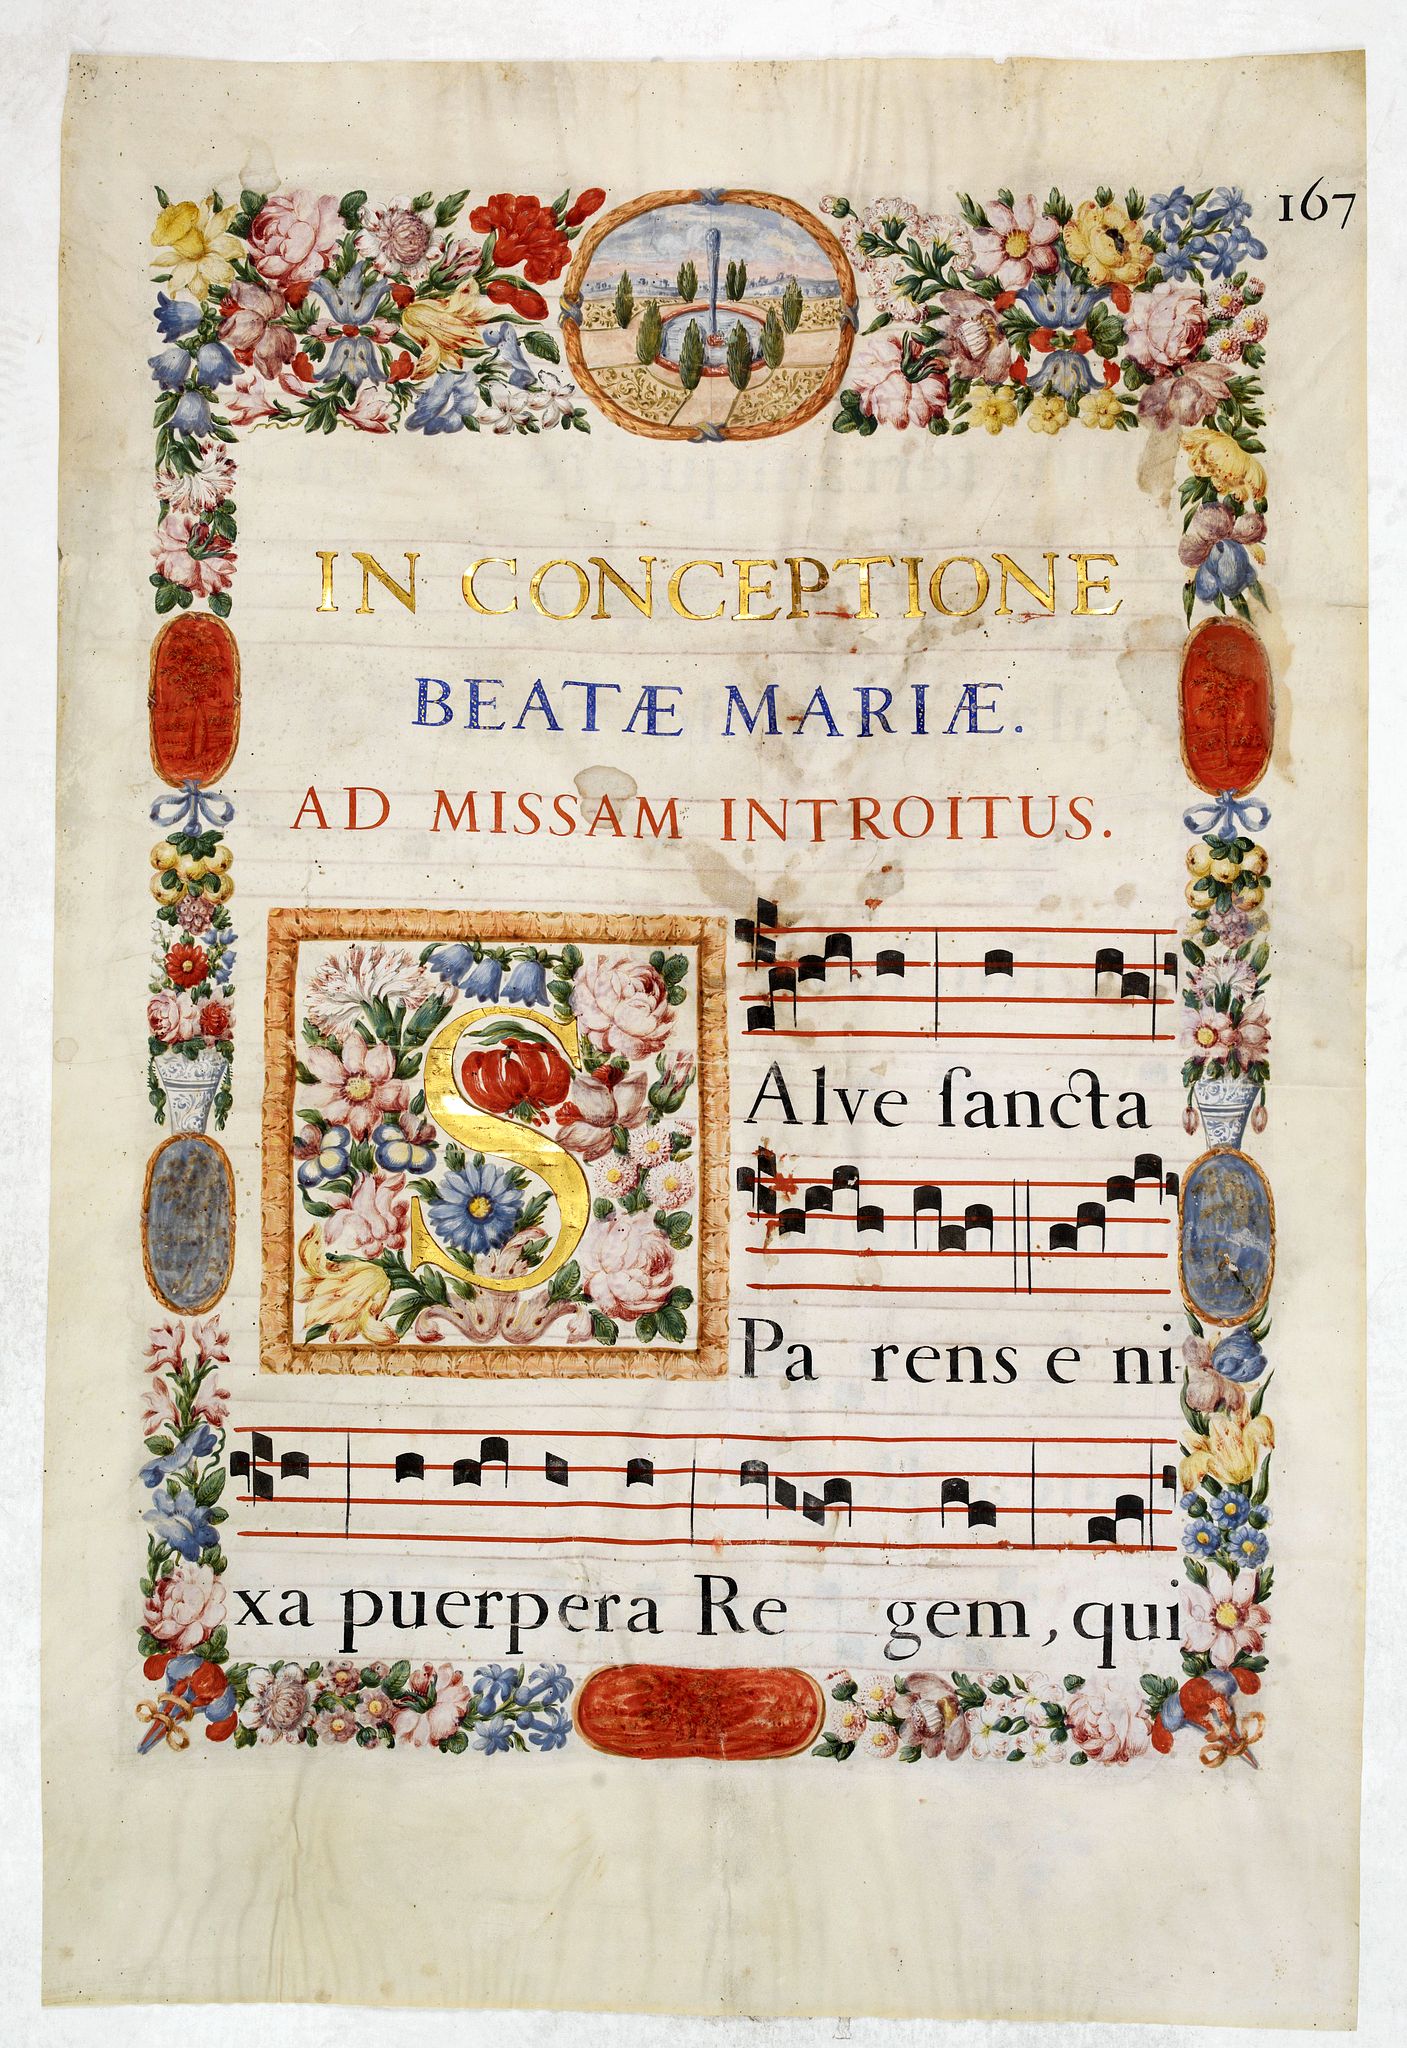 167
IN CONCEPTIONE
BEATÆ MARIÆ.
AD MISSAM INTROITUS.
SAlve ſancta
Pa rens e ni-
xa puerpera Re gem, qui